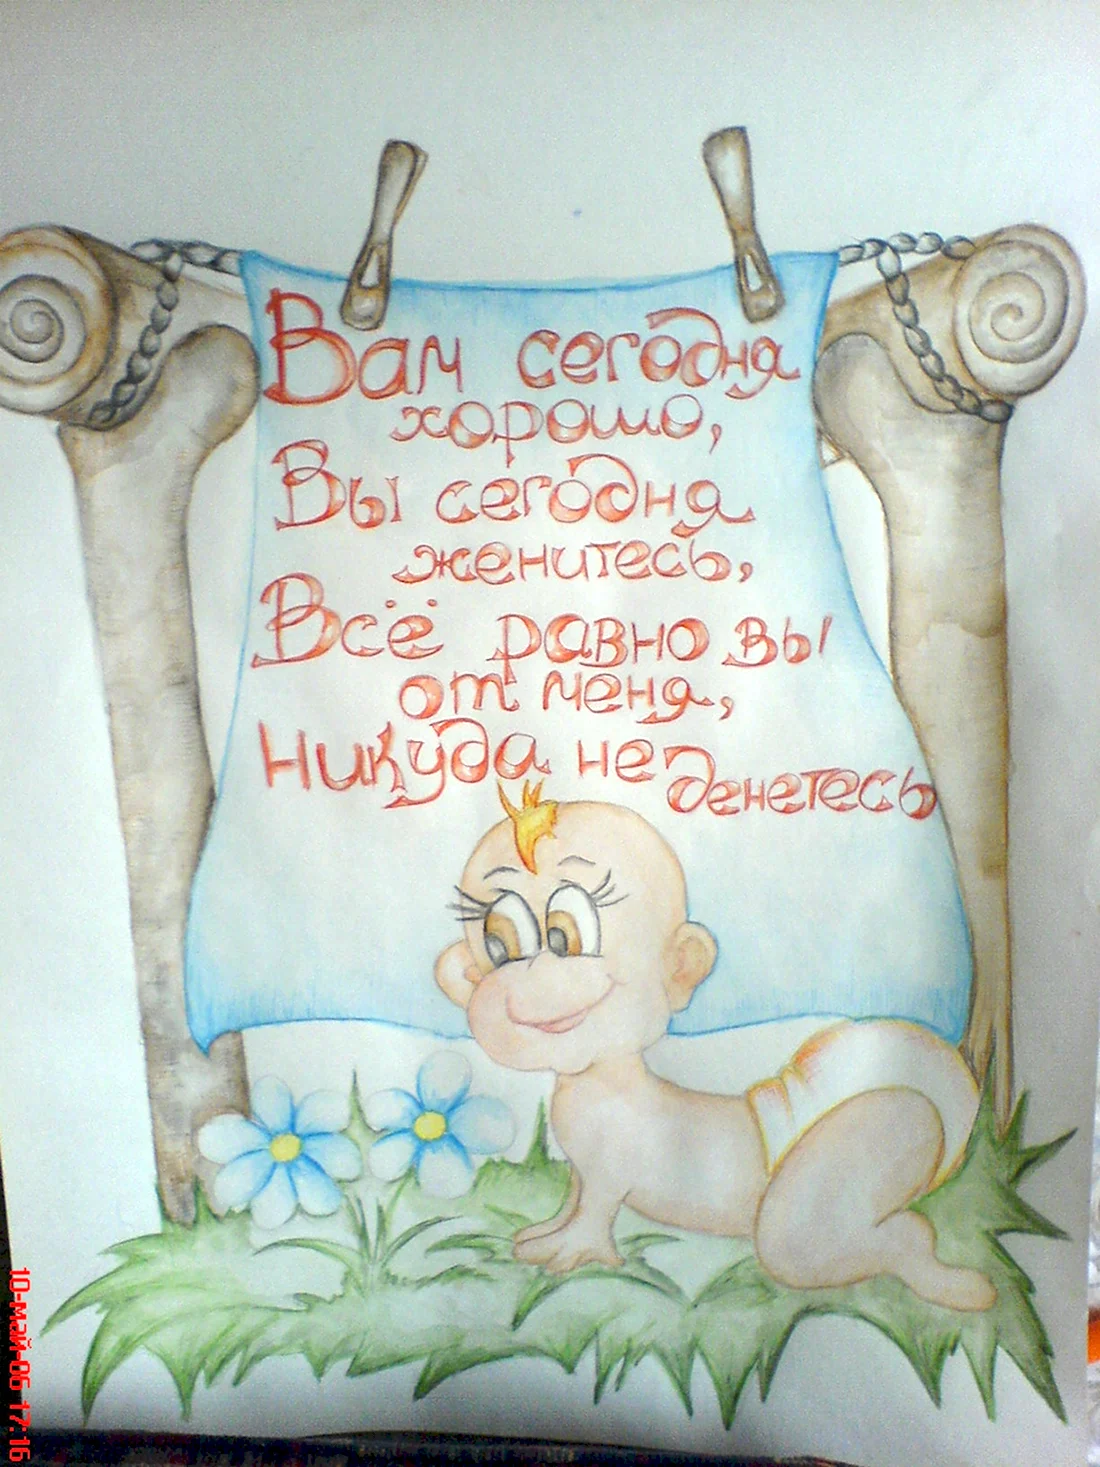 Вам сегодня
хорошо,
Вы сегодня
женитесь,
Всё равно вы
от меня,
Никуда не денетесь
10-май-06 17:16